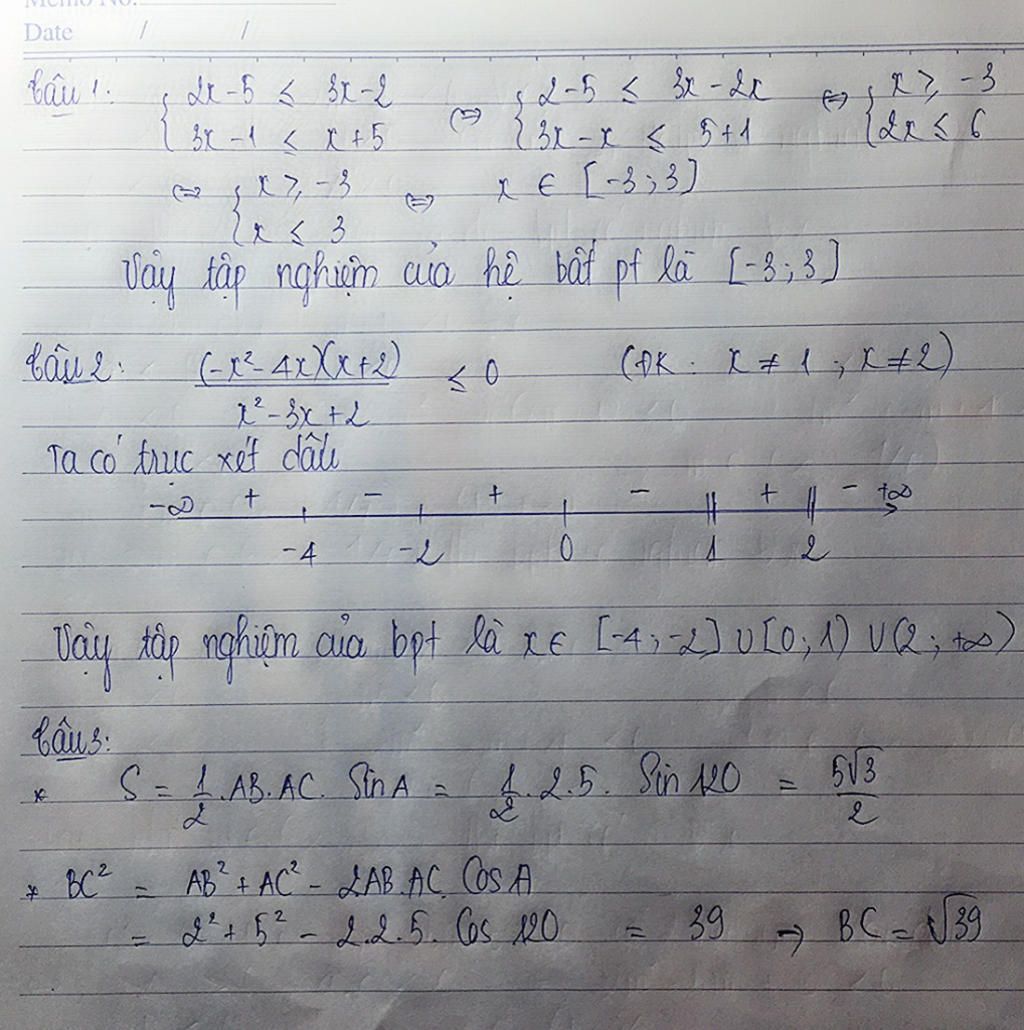 Memo No.
Date / /
Câu 1: { 2x-5 ≤ 3x-2 ⇔ { 2-5 ≤ 3x-2x ⇔ { x ≥ -3
{ 3x-1 ≤ x+5 { 3x-x ≤ 5+1 { 2x ≤ 6
⇔ { x ≥ -3 ⇔ x ∈ [-3;3]
{ x ≤ 3
Vậy tập nghiệm của hệ bất pt là [-3;3]
Câu 2: (-x²-4x)(x+2) / x²-3x+2 ≤ 0 (ĐK: x ≠ 1; x ≠ 2)
Ta có trục xét dấu
-∞ + - + - || + || - +∞
-4 -2 0 1 2
Vậy tập nghiệm của bpt là x ∈ [-4;-2] ∪ [0;1) ∪ (2;+∞)
Câu 3:
* S = 1/2 .AB.AC. Sin A = 1/2 .2.5. Sin 120 = 5√3/2
* BC² = AB² + AC² - 2AB.AC. Cos A
= 2² + 5² - 2.2.5. Cos 120 = 39 → BC = √39